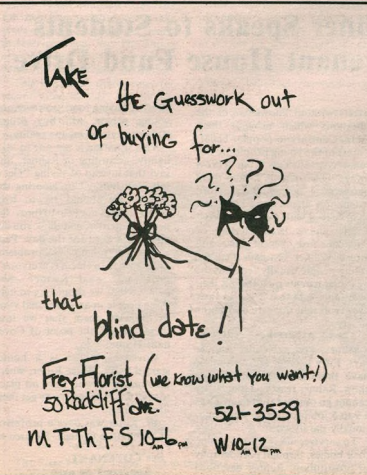 TAKE
tHE Guesswork out
OF buying for...
? ? ? ? ?
that
blind date!
Frey Florist (we know what you want!)
50 Radcliff ave.
521-3539
M T Th F S 10AM-6PM
W 10AM-12PM